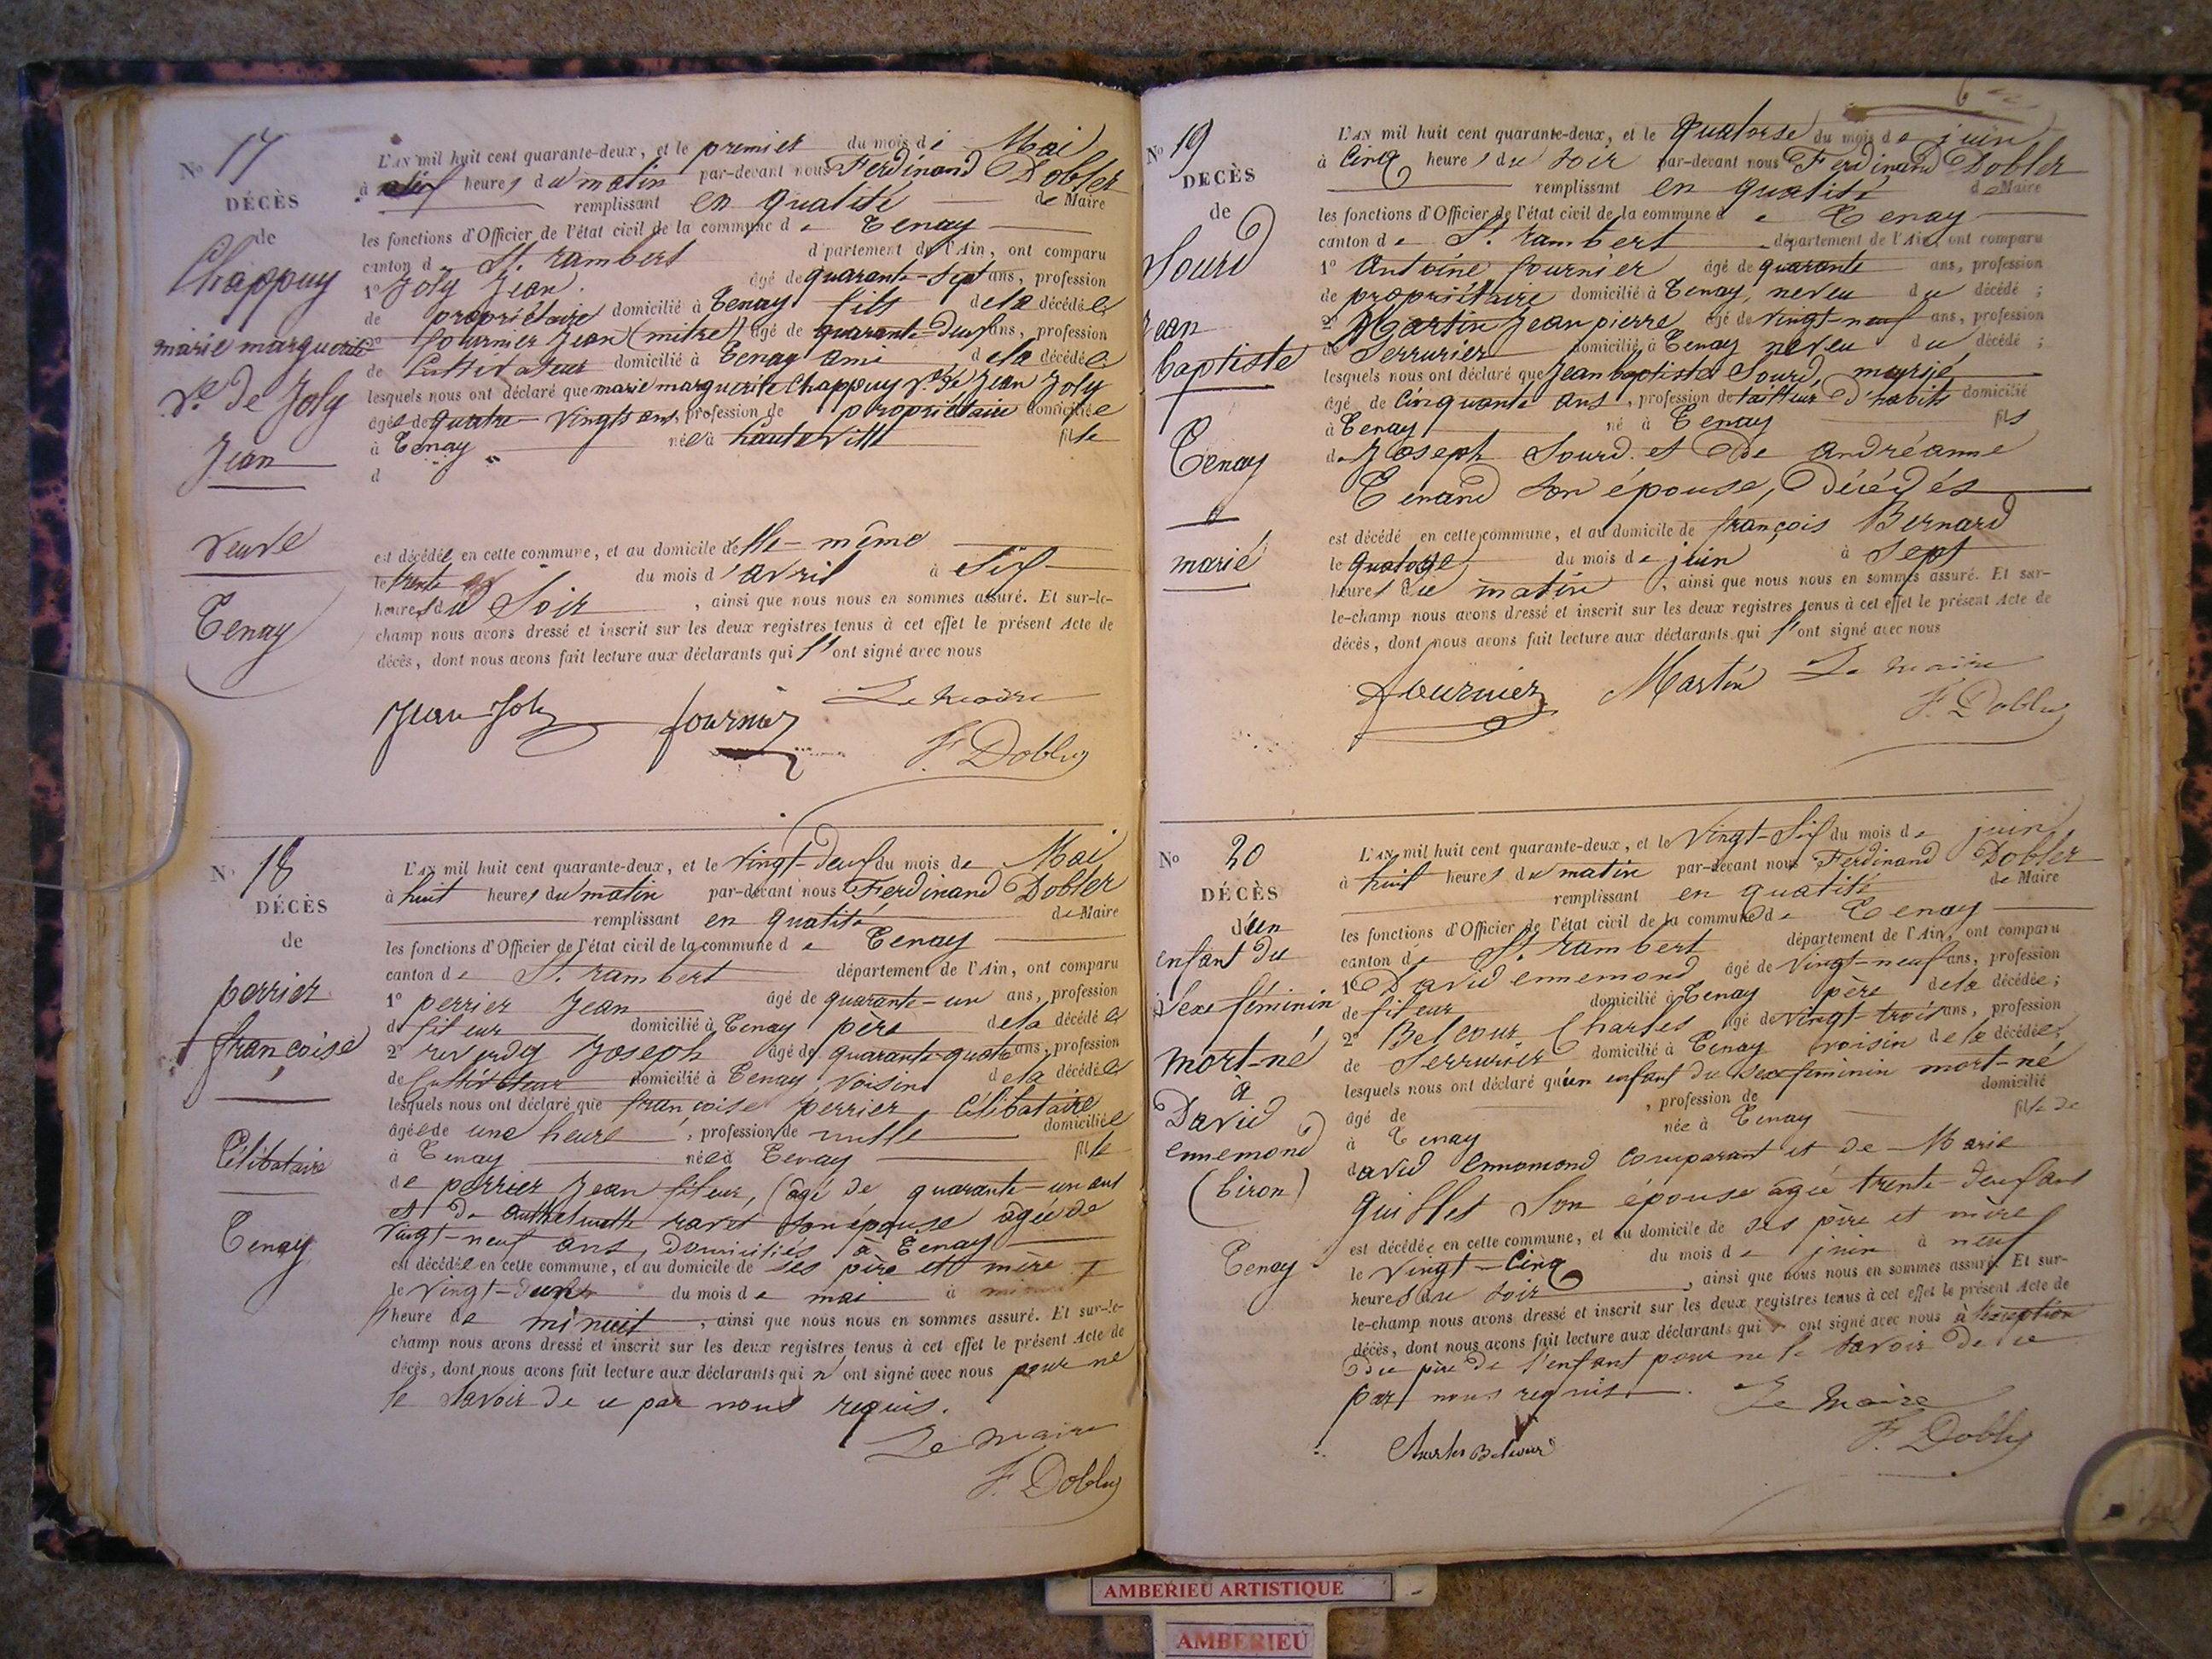 N° 17
DÉCÈS
de
Chappuy
marie marguerite
Ve de Joly
Jean
Veuve
Tenay
L'AN mil huit cent quarante-deux, et le premier du mois de Mai
à heures du matin par-devant nous Ferdinand Dobler
remplissant en qualité de Maire
les fonctions d'Officier de l'état civil de la commune de Tenay
canton de St. rambert département de l'Ain, ont comparu
1° Joly Jean âgé de quarante-sept ans, profession
de propriétaire domicilié à Tenay fils de la décédée
2° fournier Jean (mitre) âgé de quarante-deux ans, profession
de Cultivateur domicilié à Tenay ami de la décédée
lesquels nous ont déclaré que marie marguerite Chappuy Ve de Jean Joly
âgée de quatre-vingts ans, profession de propriétaire domiciliée
à Tenay née à hauteville fille
d
est décédée en cette commune, et au domicile d'elle-même
le trente du mois d'avril à six
heures du Soir, ainsi que nous nous en sommes assuré. Et sur-le-
champ nous avons dressé et inscrit sur les deux registres tenus à cet effet le présent Acte de
décès, dont nous avons fait lecture aux déclarants qui l'ont signé avec nous
Jean Joly fournier Le maire
F. Dobler
N° 18
DÉCÈS
de
perrier
françoise
Célibataire
Tenay
L'AN mil huit cent quarante-deux, et le vingt-deux du mois de Mai
à huit heures du matin par-devant nous Ferdinand Dobler
remplissant en qualité de Maire
les fonctions d'Officier de l'état civil de la commune de Tenay
canton de St. rambert département de l'Ain, ont comparu
1° perrier Jean âgé de quarante-un ans, profession
de fileur domicilié à Tenay père de la décédée
2° reverdy Joseph âgé de quarante-quatre ans, profession
de Cultivateur domicilié à Tenay, voisin de la décédée
lesquels nous ont déclaré que françoise perrier, Célibataire
âgée de une heure, profession de nulle domiciliée
à Tenay née à Tenay fille
de perrier Jean fileur, âgé de quarante-un ans
et de anthelmette ravet son épouse âgée de
vingt-neuf ans, domiciliés à Tenay
est décédée en cette commune, et au domicile de ses père et mère
le vingt-deux du mois de mai à
heure de minuit, ainsi que nous nous en sommes assuré. Et sur-le-
champ nous avons dressé et inscrit sur les deux registres tenus à cet effet le présent Acte de
décès, dont nous avons fait lecture aux déclarants qui n'ont signé avec nous pour ne
le savoir de ce par nous requis.
Le maire
F. Dobler
6
N° 19
DÉCÈS
de
Sourd
Jean
baptiste
Tenay
marié
L'AN mil huit cent quarante-deux, et le quatorse du mois de juin
à Cinq heures du soir par-devant nous Ferdinand Dobler
remplissant en qualité de Maire
les fonctions d'Officier de l'état civil de la commune de Tenay
canton de St. rambert département de l'Ain, ont comparu
1° antoine fournier âgé de quarante ans, profession
de propriétaire domicilié à Tenay, neveu du décédé ;
2° Martin Jean pierre âgé de vingt-neuf ans, profession
de Serrurier domicilié à Tenay neveu du décédé ;
lesquels nous ont déclaré que Jean baptiste Sourd, marié
âgé de Cinquante ans, profession de tailleur d'habits domicilié
à Tenay né à Tenay fils
de Joseph Sourd et de andréanne
Tenand son épouse, décédés
est décédé en cette commune, et au domicile de françois Bernard
le quatorze du mois de juin à sept
heures du matin, ainsi que nous nous en sommes assuré. Et sur-
le-champ nous avons dressé et inscrit sur les deux registres tenus à cet effet le présent Acte de
décès, dont nous avons fait lecture aux déclarants qui l'ont signé avec nous
fournier Martin Le maire
F. Dobler
N° 20
DÉCÈS
d'un
enfant du
sexe féminin
mort-né
à
David
ennemond
(biron)
Tenay
L'AN mil huit cent quarante-deux, et le vingt-six du mois de juin
à huit heures du matin par-devant nous Ferdinand Dobler
remplissant en qualité de Maire
les fonctions d'Officier de l'état civil de la commune de Tenay
canton de St. rambert département de l'Ain, ont comparu
1° David ennemond âgé de vingt-neuf ans, profession
de fileur domicilié à Tenay père de la décédée ;
2° Belcour Charles âgé de vingt-trois ans, profession
de Serrurier domicilié à Tenay voisin de la décédée ;
lesquels nous ont déclaré qu'un enfant du sexe féminin mort-né
âgé de , profession de domicilié
à Tenay née à Tenay fille de
david ennemond comparant et de Marie
quillet son épouse âgée trente-deux ans
est décédée en cette commune, et au domicile de ses père et mère
le vingt-Cinq du mois de juin à neuf
heures du soir, ainsi que nous nous en sommes assuré. Et sur-
le-champ nous avons dressé et inscrit sur les deux registres tenus à cet effet le présent Acte de
décès, dont nous avons fait lecture aux déclarants qui ont signé avec nous à l'exception
du père de l'enfant pour ne le savoir de ce
par nous requis.
Le maire
Charles Belcour F. Dobler
AMBERIEU ARTISTIQUE
AMBERIEU